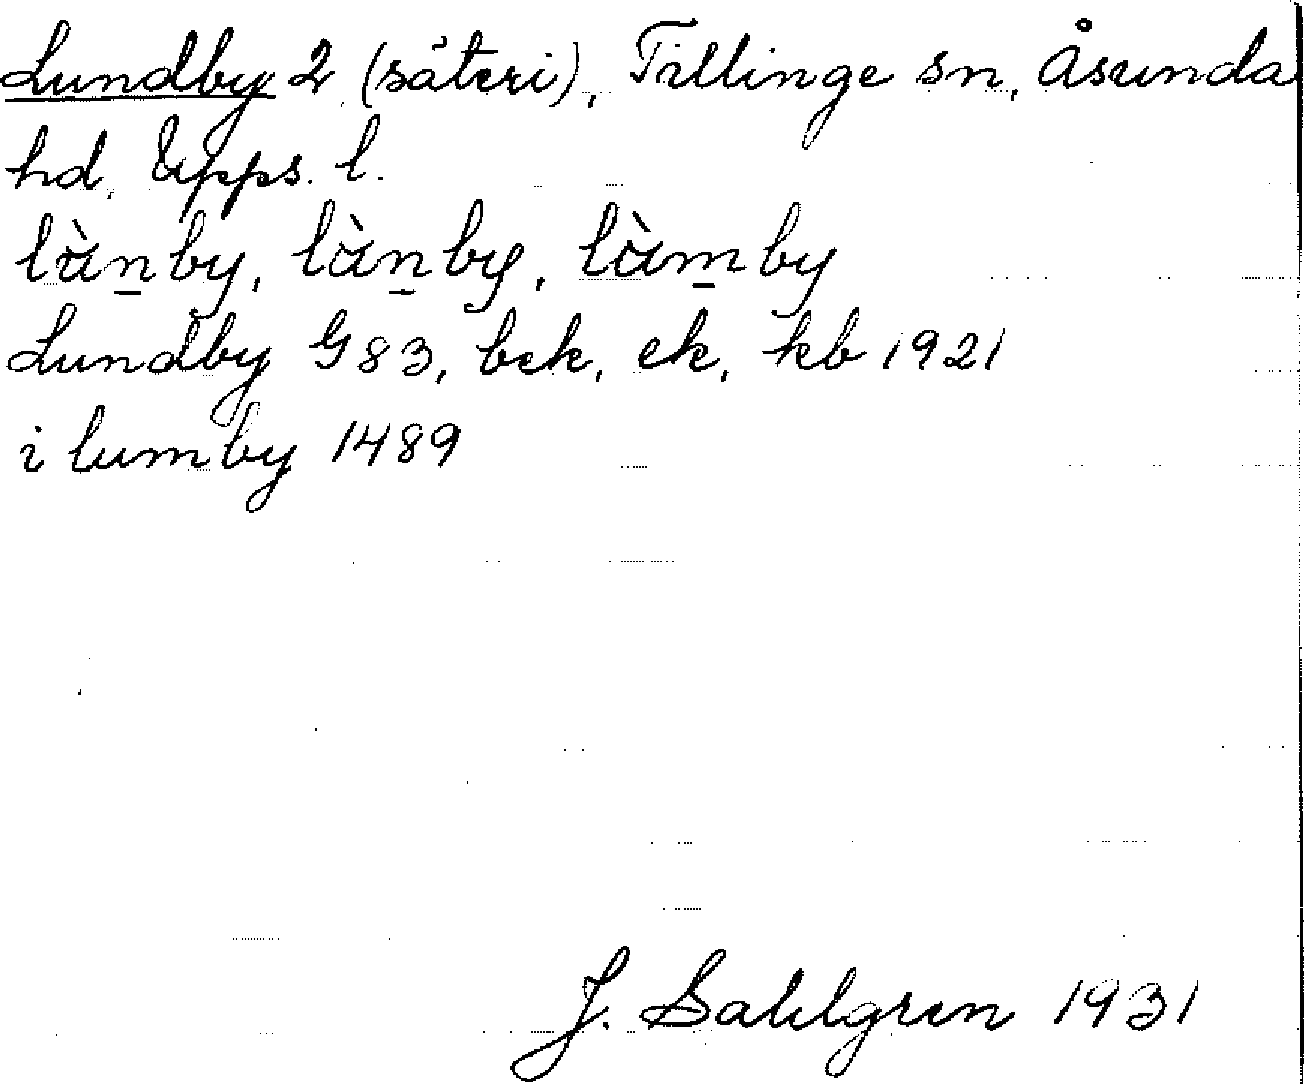 Lundby 2 (säteri), Tillinge sn, Åsunda
hd, Upps. l.
lùn̲by, lùn̲by, lùm̲by
Lundby G 83, bek, ek, kb 1921
i lumby 1489
J. Dahlgren 1931